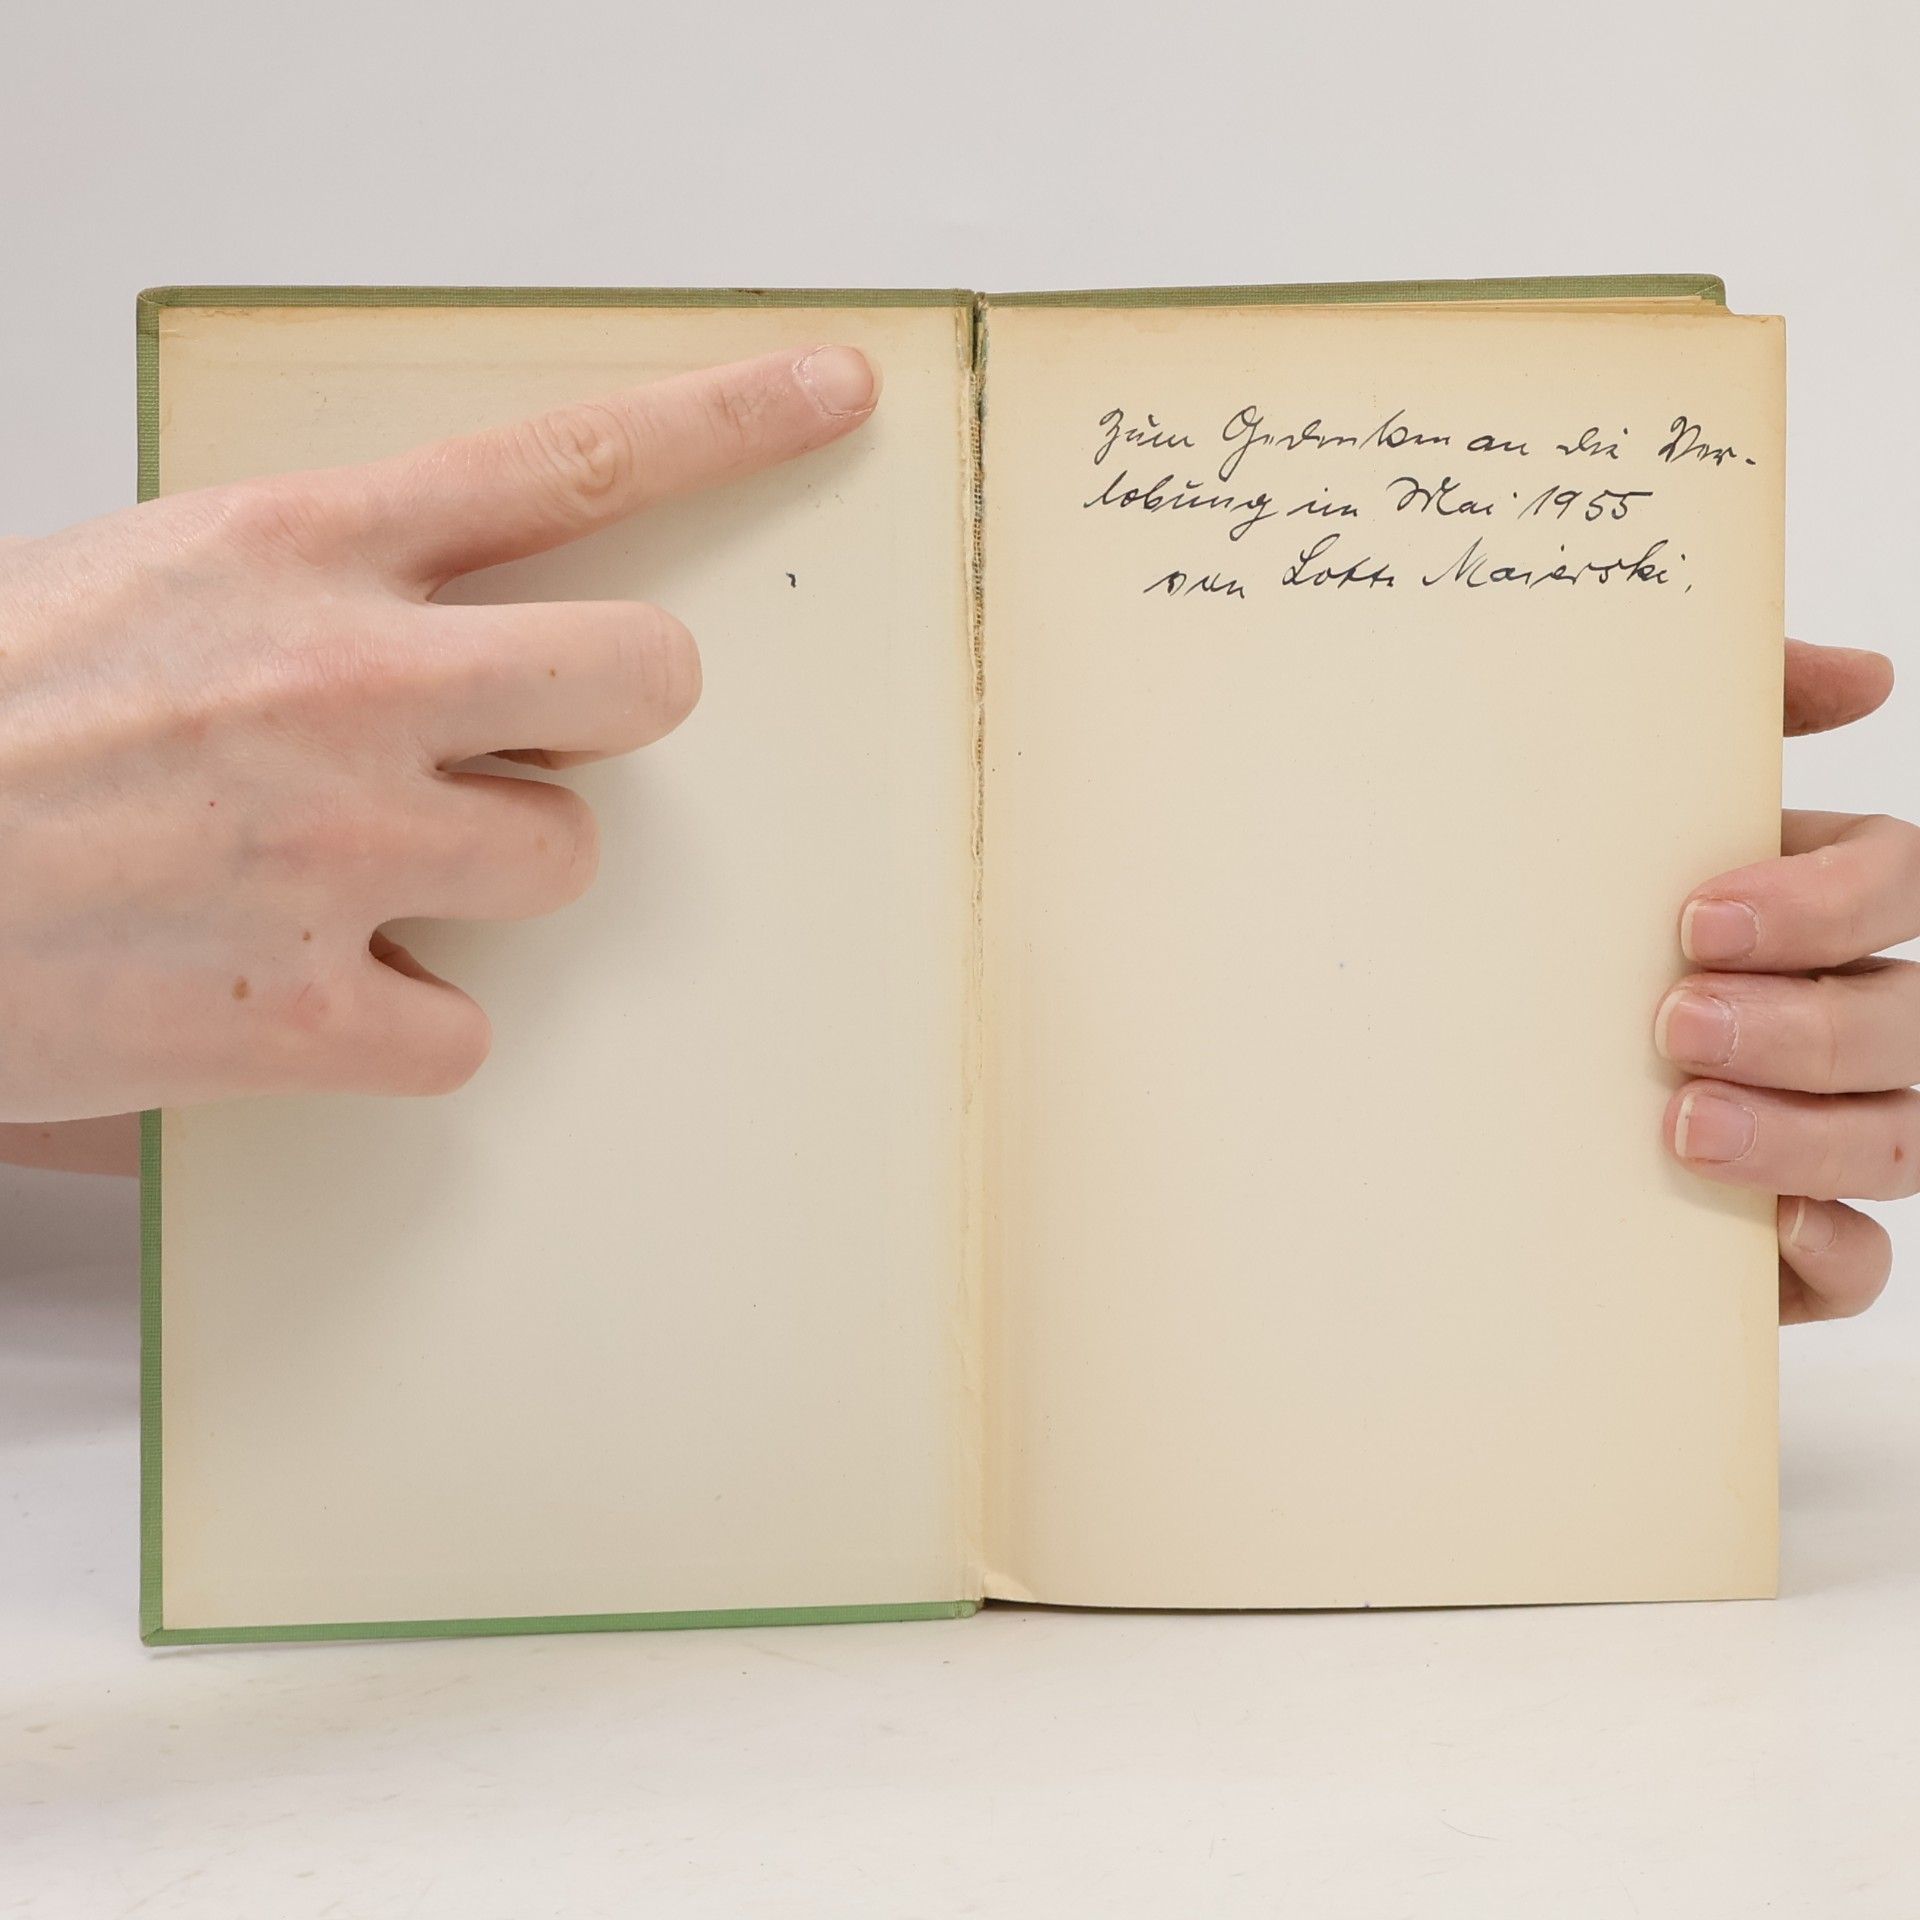 Zum Gedenken an die Ver-
lobung im Mai 1955
von Lotte Maierski.